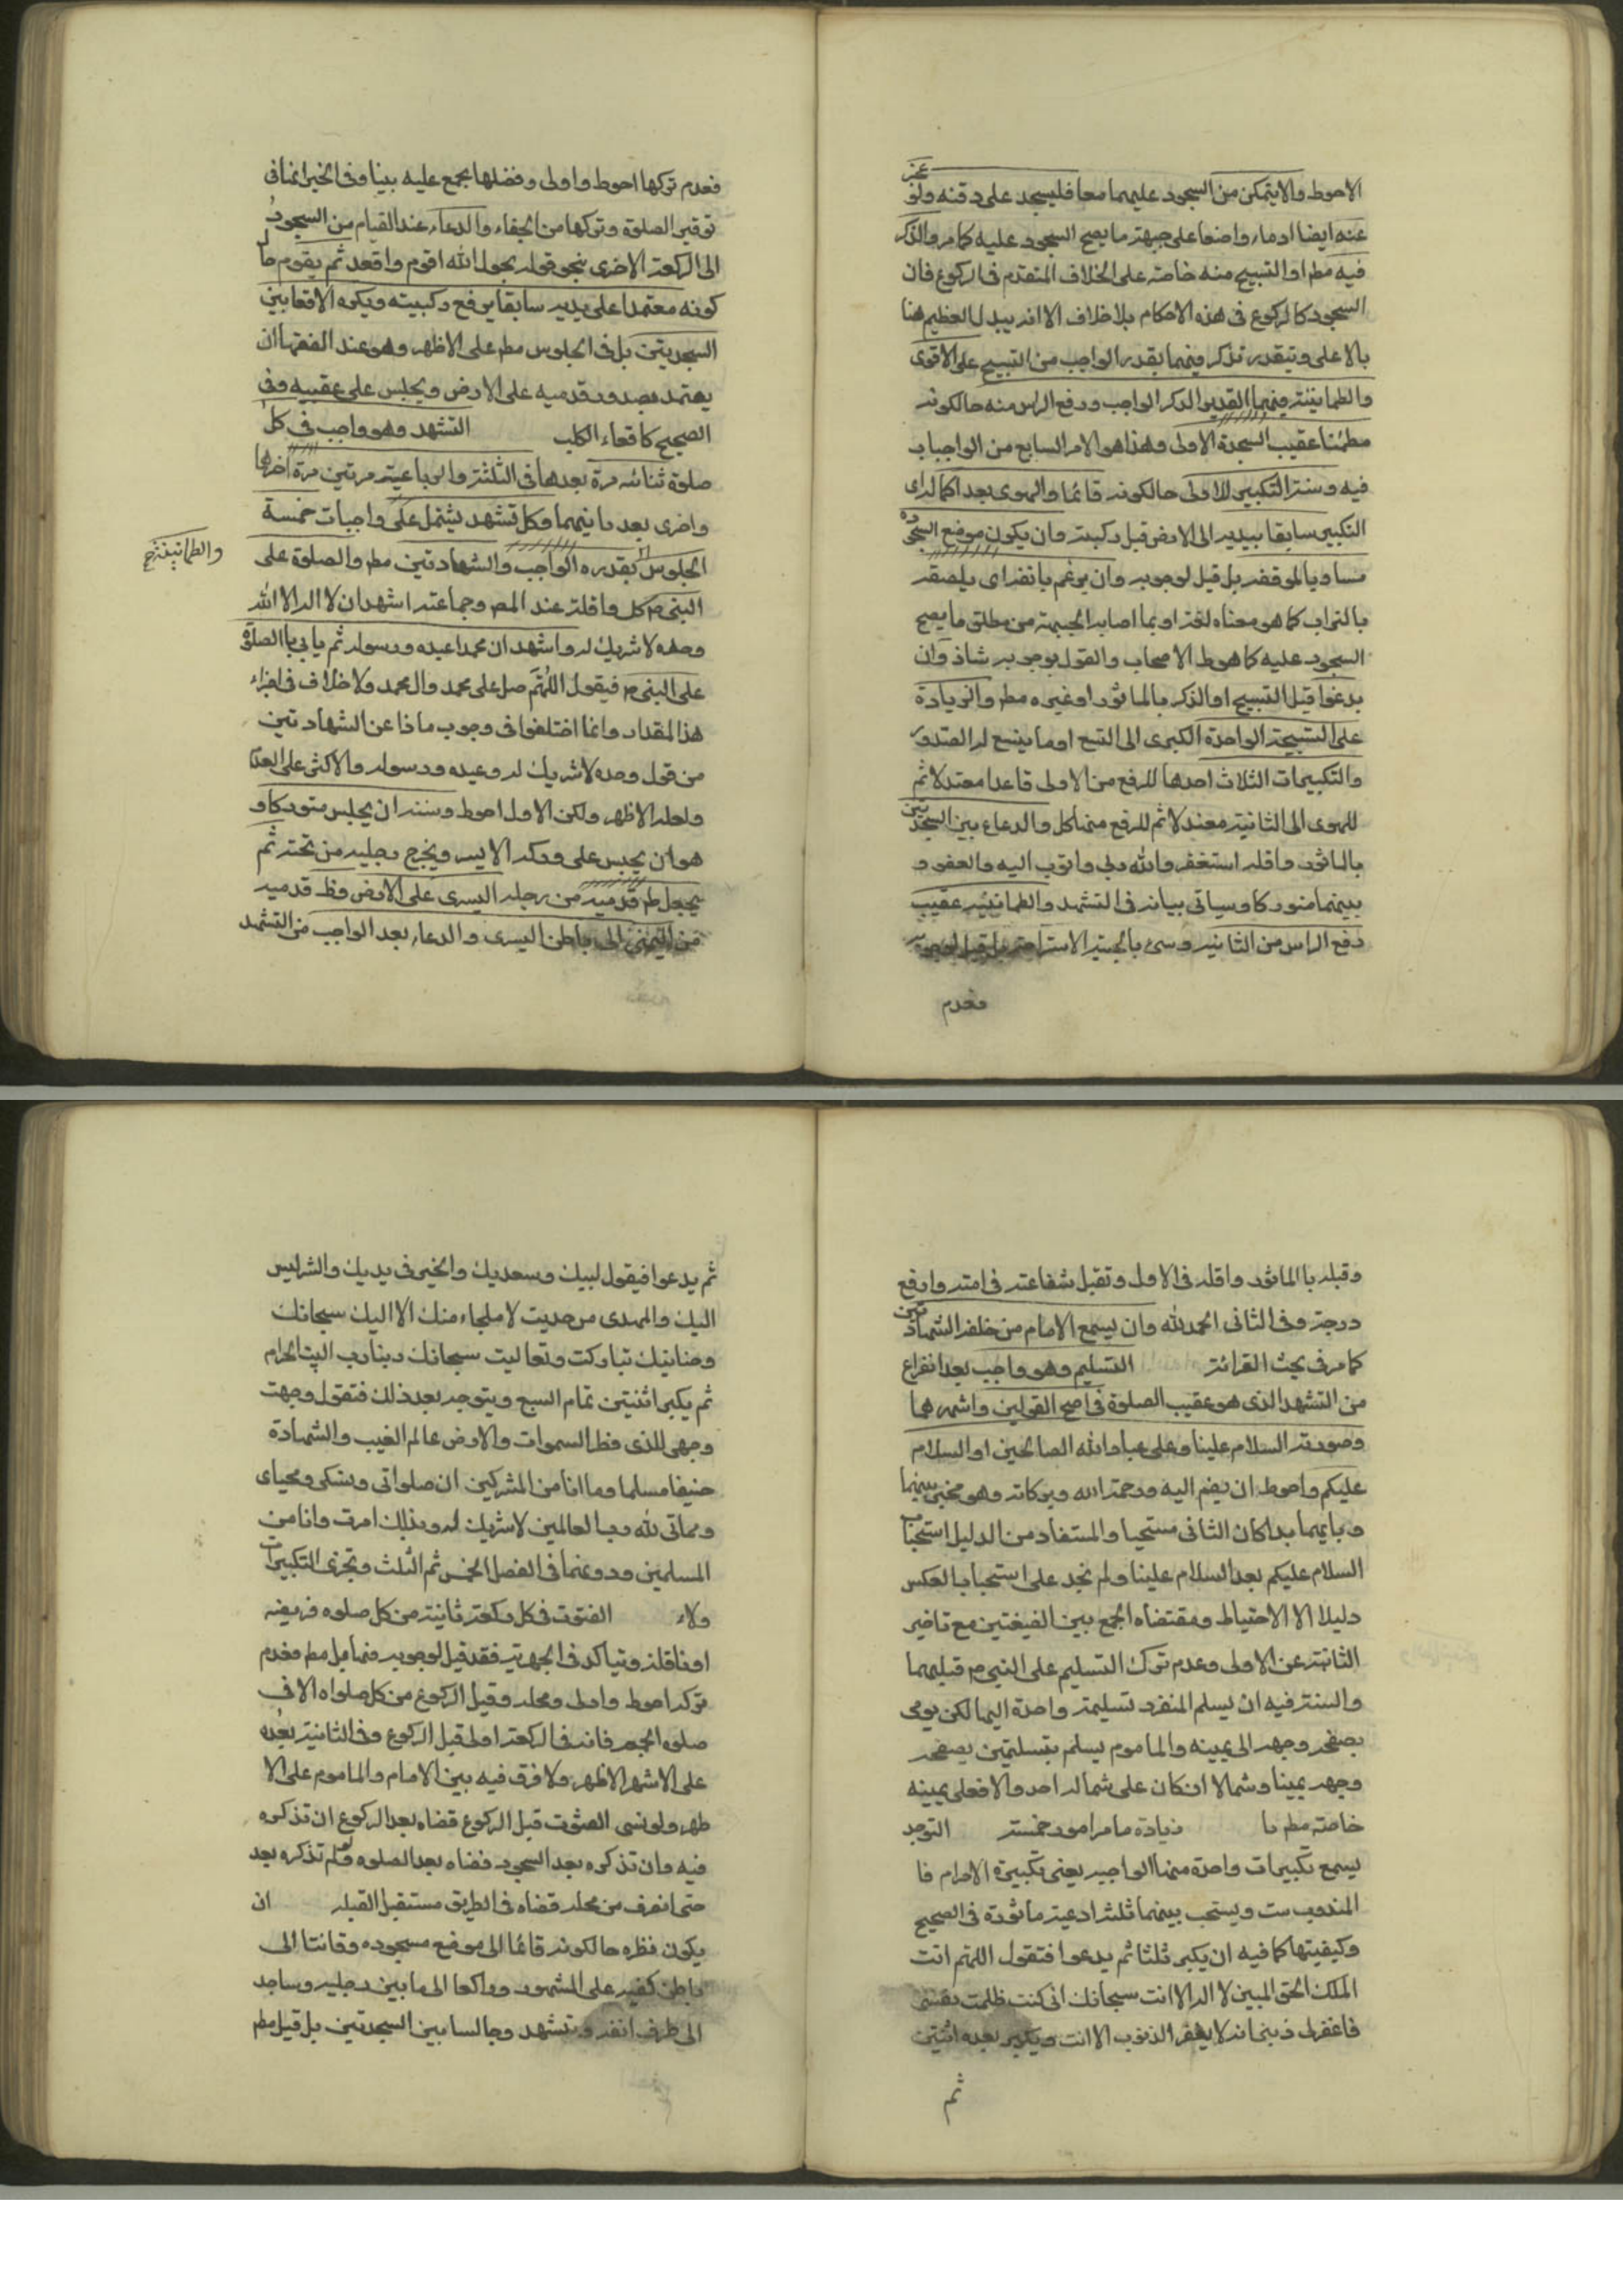 الاحوط والايتمكن من السجود عليهما معا فليسجد على دقنه ولو
عجز
عنه ايضا اوماء واضعا على جبهته ما يصح السجود عليه كما مر والذكر
فيه مطم او التسبيح منه خاصة على الخلاف المتقدم فى الركوع فان
السجود كالركوع فى هذه الاحكام بلا خلاف الا انه يبدل العظيم هنا
بالاعلى وتيقدر تذكر فيهما بقدر الواجب من التسبيح على الاقوى
والطمانينة فيهما بقدر الذكر الواجب ورفع الراس منه حالكونه
مطمئنا عقيب السجدة الاولى وهذا هو الامر السابع من الواجبات
فيه وسننه التكبير للاولى حالكونه قائما والهوى بعد اكماله اى
التكبير سابقا بيديه الى الارض قبل ركبته وان يكون موضع السجوده
مساويا لموقفه بل قيل لوجوبه وان يرغم بانفه اى يلصقه
بالتراب كما هو معناه لغة او بما اصابه الجبهة من مطلق ما يصح
السجود عليه كما هو ط الاصحاب والقول بوجوبه شاذ وان
يدعوا قبل التسبيح او الذكر بالماثور او غيره مطم والزيادة
على التسبيحة الواحدة الكبرى الى التسع او ما يتسع له الصدور
والتكبيرات الثلاث احدها للرفع من الاولى قاعدا معتدلا ثم
للهوى الى الثانية معتدلا ثم للرفع منها كل والدعاء بين السجدتين
بالماثور واقله استغفر والله ربى واتوب اليه والعفو و
بينهما متوركا وسياتى بيانه فى التشهد والطمانينه عقيب
رفع الراس من الثانيه وسمى بالجلسه الاستراحة بل قيل لوجوبه
فعدم
فعدم تركها احوط واولى وفضلها مجمع عليه بيننا وفى الخبر انها فى
توقير الصلوة وتركها من الجفاء والدعاء عند القيام من السجود
الى الركعة الاخرى بنحو قوله بحول الله اقوم واقعد ثم يقوم حا
كونه معتمدا على يديه سابقا برفع ركبيته ويكره الاقعا بين
السجديتين بل فى الجلوس مطم على الاظهر وهو عند الفقها ان
يعتمد بصدور قدميه على الارض ويجلس على عقبيه وفى
الصحيح كاقعاء الكلب التشهد وهو واجب فى كل
صلوة ثنائيه مرة بعدها فى الثلثة والرباعية مرتين مرة اخرها
واخرى بعد ما نيهما وكل تشهد يشتمل على واجبات خمسة
الجلوس بقدره الواجب والشهادتين مطم والصلوة على
والطمانينة صح
النبى ص كل واقلته عند المصم وجماعته اشهد ان لا اله الا الله
وحده لا شريك له واشهد ان محمدا عبده ورسوله ثم يا بى باالصلوة
على النبى ص فيقول اللهم صل على محمد وال محمد ولا خلاف فى اجزاء
هذا لمقدار وانما اختلفوا فى وجوب ماذا عن الشهادتين
من قول وحده لا شريك له وعبده ورسوله والاكثر على العدا
ولعله الاظهر ولكن الاول احوط وسننه ان يجلس متوركا و
هو ان يجبس على وركه الايسر ويخرج رجليه من تحته ثم
يجعل ظم قدميه من رجله اليسرى على الارض وظ قدميه
من اليمنى الى باطن اليسرى والدعاء بعد الواجب من التشهد
وقبله باالماثور واقله فى الاول وتقبل شفاعته فى امته وارفع
درجته وفى الثانى الحمد لله وان يسمع الامام من خلفه الشهادتين
كما مر فى بحث القرائة التسليم وهو واجب بعد انفراغ
من التشهد الذى هو عقيب الصلوة فى اصح القولين واشهرهما
وصورته السلام علينا وعلى عباد الله الصالحين او السلام
عليكم واحوط ان يضم اليه ورحمة الله وبركاته وهو مخير بينهما
وبايهما بدا كان الثانى مستحبا والمستفاد من الدليل استحباب
السلام عليكم بعد السلام علينا ولم نجد على استحبابا بالعكس
دليلا الا الاحتياط ومقتضاه الجمع بين الضيغتين مع تاخير
الثانية عن الاولى وعدم ترك التسليم على النبى ص قبليهما
والسنة فيه ان يسلم المنفرد تسليمة واحدة اليهما لكن يومى
بصفحه وجهه الى يمينه والماموم يسلم بتسليمتين بصفحه
وجهه يمينا وشمالا ان كان على شماله احد والا فعلى يمينه
خاصته مطم ما زيادة ما مر امور خمسة التوجه
يسمع تكبيرات واحدة منها الواجبه يعنى تكبيرة الاحرام فا
المندوب ست ويستحب بينهما ثلثه ادعية ماثورة فى الصحيح
وكيفيتها كما فيه ان يكبر ثلثا ثم يدعوا فتقول اللهم انت
الملك الحق المبين لا اله الا انت سبحانك انى كنت ظلمت نفسى
فاغفرلى ذنبى انه لا يغفر الذنوب الا انت ويكبر بعده اثنتين
ثم
ثم يدعوا فيقول لبيك وسعديك والخير فى يديك والشر ليس
اليك والمهدى من هديت لا ملجاء منك الا اليك سبحانك
وحنانيك تباركت وتعاليت سبحانك ربنا رب البيت الحرام
ثم يكبر اثنتين تمام السبع ويتوجه بعد ذلك فتقول وجهت
وجهى للذى فطر السموات والارض عالم الغيب والشهادة
حنيفا مسلما وما انا من المشركين ان صلواتى ونسكى ومحياى
ومماتى لله رب العالمين لا شريك له وبذلك امرت وانا من
المسلمين ودونهما فى الفضل الخمس ثم الثلث وتجزى التكبيرات
ولاء القنوت فى كل ركعة ثانية من كل صلوه فريضه
او نافلة ويتاكد فى الجهريه فقد قيل لوجوبه فيها بل مطم فعدم
تركه احوط واولى ومحله وقبل الركوع من كل صلواه الا فى
صلوه الجمعه فانه فى الركعة اولى قبل الركوع وفى الثانية بعده
على الاشهر الاظهر ولا فرق فيه بين الامام والماموم على الا
ظهر ولو نسى القنوت قبل الركوع قضاه بعد الركوع ان تذكره
فيه وان تذكره بعد السجود قضاه بعد الصلوه ولو لم تذكره بعد
حتى انصرف من محله قضاه فى الطريق مستقبل القبله ان
يكون نظره حالكونه قائما الى موضع مسجوده وقانتا الى
باطن كفيه على المشهور وراكعا الى ما بين رجليه وساجد
الى طرف انفه وبتشهد وجالسا بين السجدتين بل قيل مطم